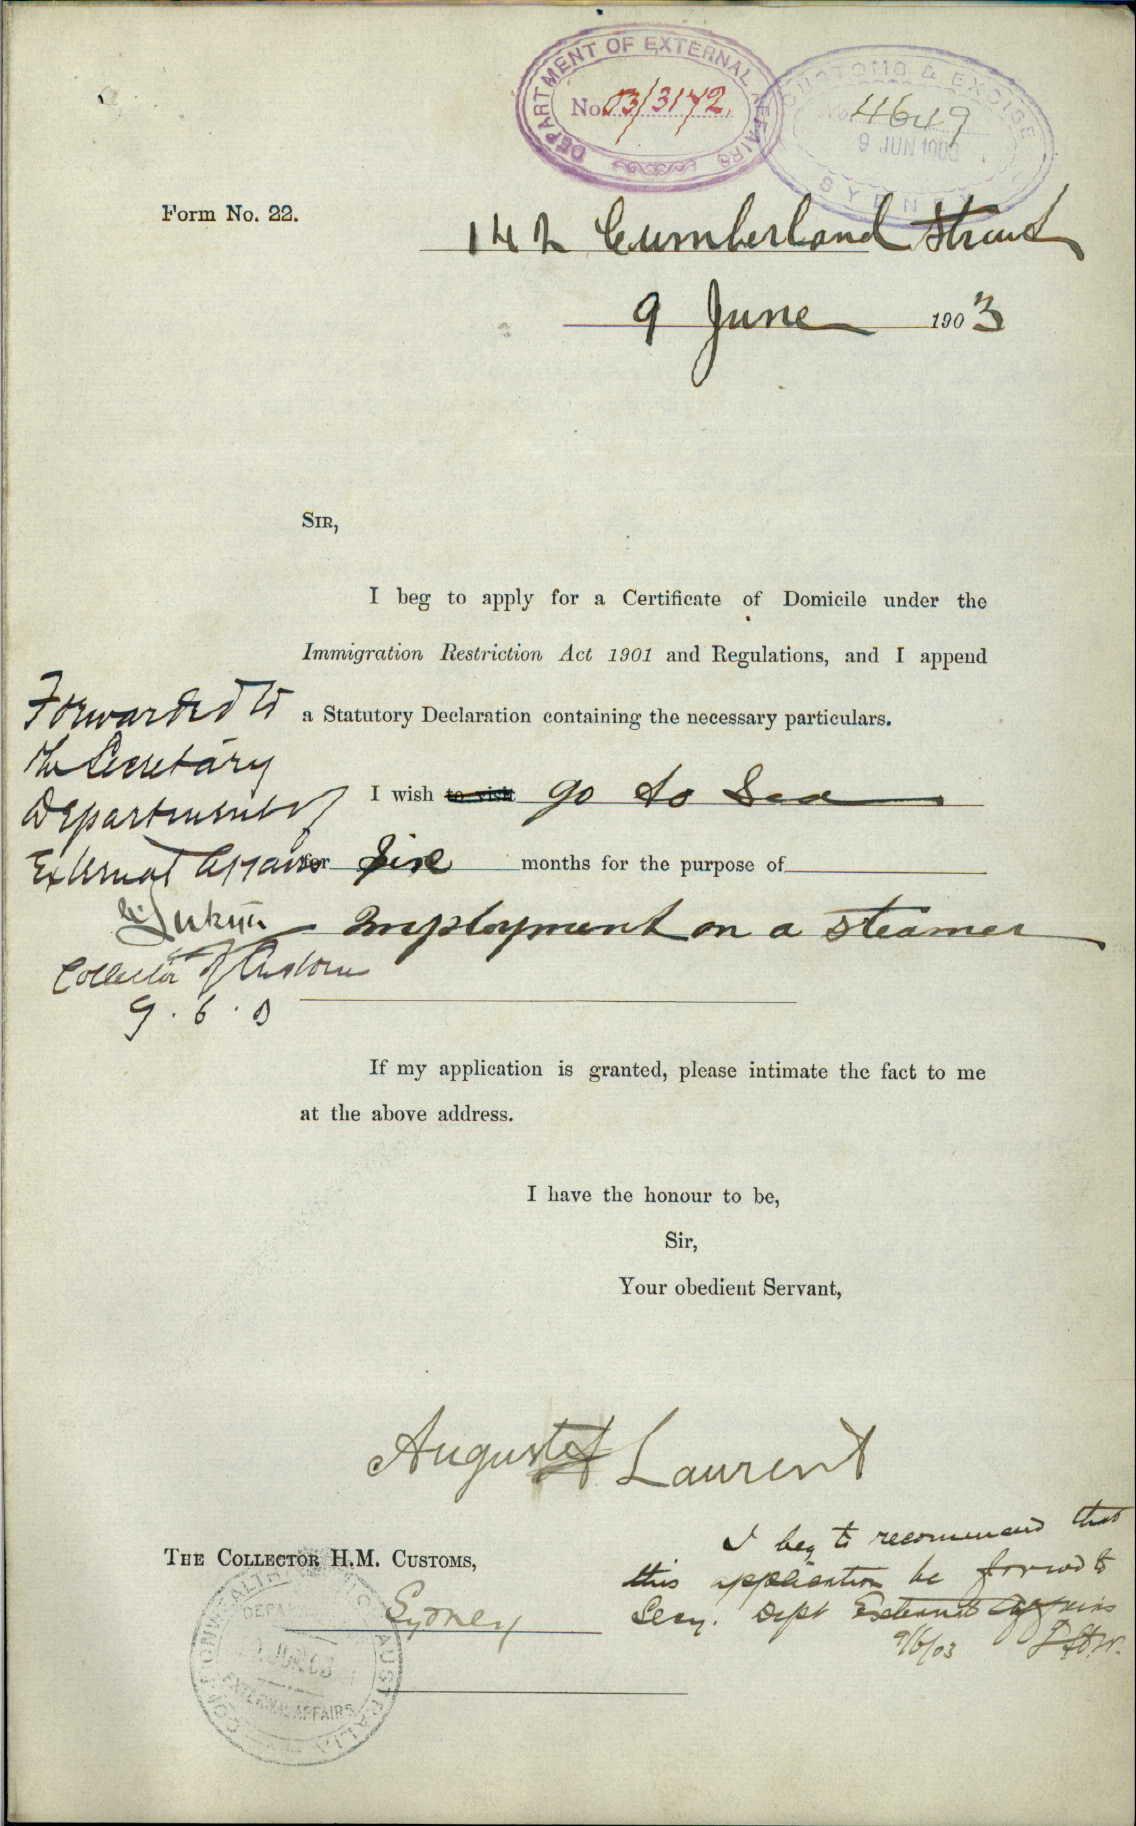 DEPARTMENT OF EXTERNAL AFFAIRS
No 03/3172
CUSTOMS & EXCISE
No 4649
9 JUN 1903
SYDNEY
Form No. 22.
142 Cumberland Street
9 June 1903
SIR,
I beg to apply for a Certificate of Domicile under the
Immigration Restriction Act 1901 and Regulations, and I append
a Statutory Declaration containing the necessary particulars.
I wish to visit go to Sea
for five months for the purpose of
Employment on a steamer
Forwarded to
the Secretary
Department of
External Affairs
Collector of Customs
9.6.3
If my application is granted, please intimate the fact to me
at the above address.
I have the honour to be,
Sir,
Your obedient Servant,
August Laurent
THE COLLECTOR H.M. CUSTOMS,
Sydney
I beg to recommend that
this application be forwd to
Secy. Dept External Affairs
9/6/03
COMMONWEALTH OF AUSTRALIA
JUN 03
EXTERNAL AFFAIRS